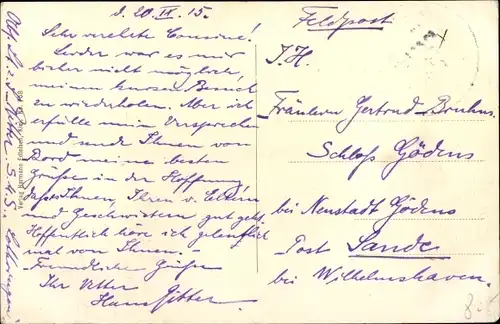 d. 20. IX. 15.
Sehr verehrte Cousine!
Leider war es mir
bisher nicht möglich,
meinen kurzen Besuch
zu wiederholen. Aber ich
erfülle mein Versprechen
und sende Ihnen von
Bord meine besten
Grüße in der Hoffnung,
dass Ihnen, Ihren v. Eltern
und Geschwistern gut geht.
Hoffentlich höre ich gelegentlich
mal von Ihnen. –
Freundliche Grüße
Ihr Vetter
Hans Jitter.
S.M.S. Lothringen
Feldpost
I.H.
Fräulein Gertrud Bruhns
Schloß Gödens
bei Neustadt Gödens
Post Sande
bei Wilhelmshaven.